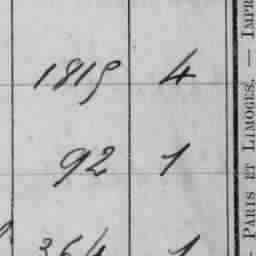 1819 4
92 1
364 1
- PARIS ET LIMOGES. - IMPR